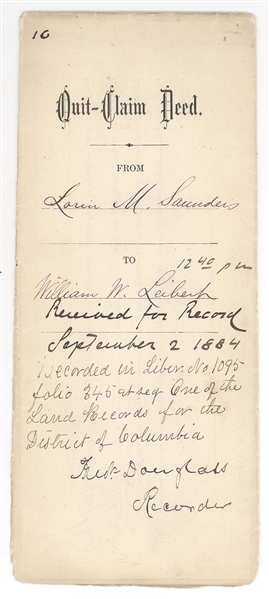 10
Quit-Claim Deed.
FROM
Lorin M. Saunders
TO
12 40 p m
William W. Leibert
Received for Record
September 2 1884
Recorded in Liber No. 1095
folio 345 et seq One of the
Land Records for the
District of Columbia
Fredk Douglass
Recorder